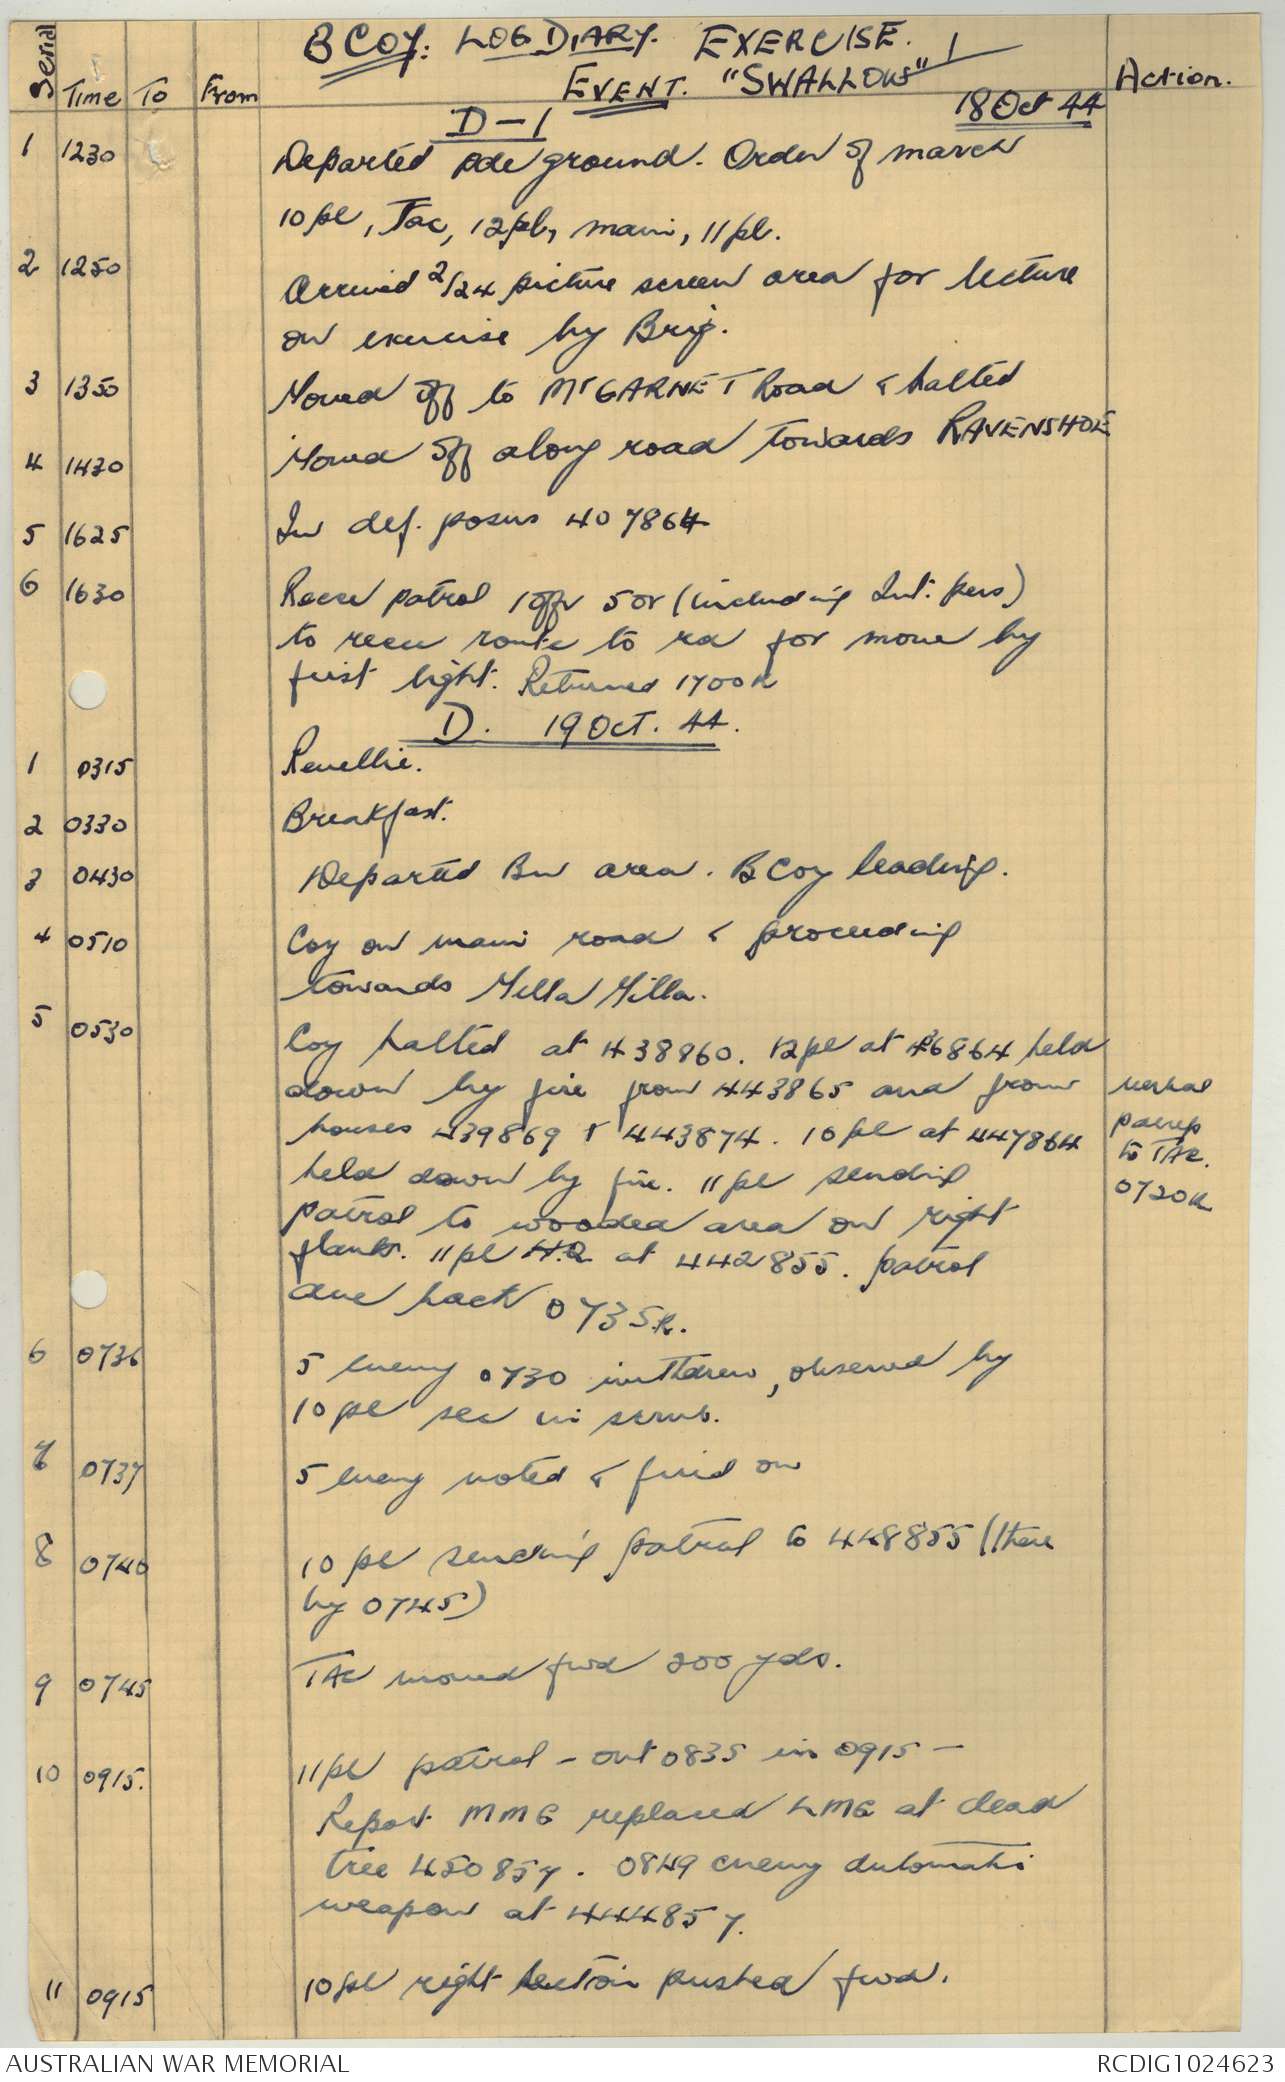 B COY: LOG DIARY. EXERCISE. 1
Serial Time To From EVENT. "SWALLOW" Action.
D-1 18 Oct 44
1 1230 Departed pde ground. Order of march
10 pl, Tac, 12 pl, main, 11 pl.
2 1250 Arrived 2/24 picture screen area for lecture
on exercise by Brig.
3 1350 Moved off to MT GARNET Road & halted
4 1430 Moved off along road towards RAVENSHOE
5 1625 In def. posns 407864
6 1630 Recce patrol 1 offr 5 or (including Int. pers)
to recce route to rd for move by
first light. Returned 1700K
D. 19 Oct. 44.
1 0315 Revellie.
2 0330 Breakfast.
3 0430 Departed Bn area. B Coy leading.
4 0510 Coy on main road & proceeding
towards Milla Milla.
5 0530 Coy halted at 438860. 12 pl at 436864 held
down by fire from 443865 and from verbal
houses 439869 & 443874. 10 pl at 447864 patrep
held down by fire. 11 pl sending to TAC.
patrol to wooded area on right 0720K
flank. 11 pl H.Q at 442855. patrol
due back 0735K.
6 0736 5 enemy 0730 withdrew, observed by
10 pl sec in scrub.
7 0737 5 enemy noted & fired on
8 0740 10 pl sending patrol to 448855 (there
by 0745)
9 0745 TAC moved fwd 200 yds.
10 0915. 11 pl patrol - out 0835 in 0915 -
Report MMG replaced LMG at dead
tree 450857. 0849 enemy automatic
weapon at 444857.
11 0915 10 pl right section pushed fwd.
AUSTRALIAN WAR MEMORIAL RCDIG1024623